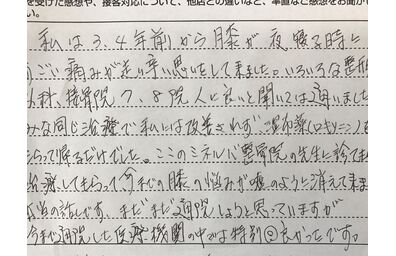 を受けた感想や、接客対応について、他店との違いなど、率直なご感想をお聞かせ
私は3、4年前から膝が夜、寝る時に
すごい痛みが走り辛い思いをして来ました。いろいろな整形
外科、接骨院7、8院人に良いと聞いては通いました
みな同じ治療で私には改善されず、湿布薬(ロキソニン)を
もらって帰るだけでした。ここのミネルバ整骨院の先生に診てもら
治療してもらって、今までの膝の悩みが嘘のように消えて来ま
本当の話しです。まだまだ通院しようと思っていますが
今まで通院した医療機関の中では特別◎良かったです。